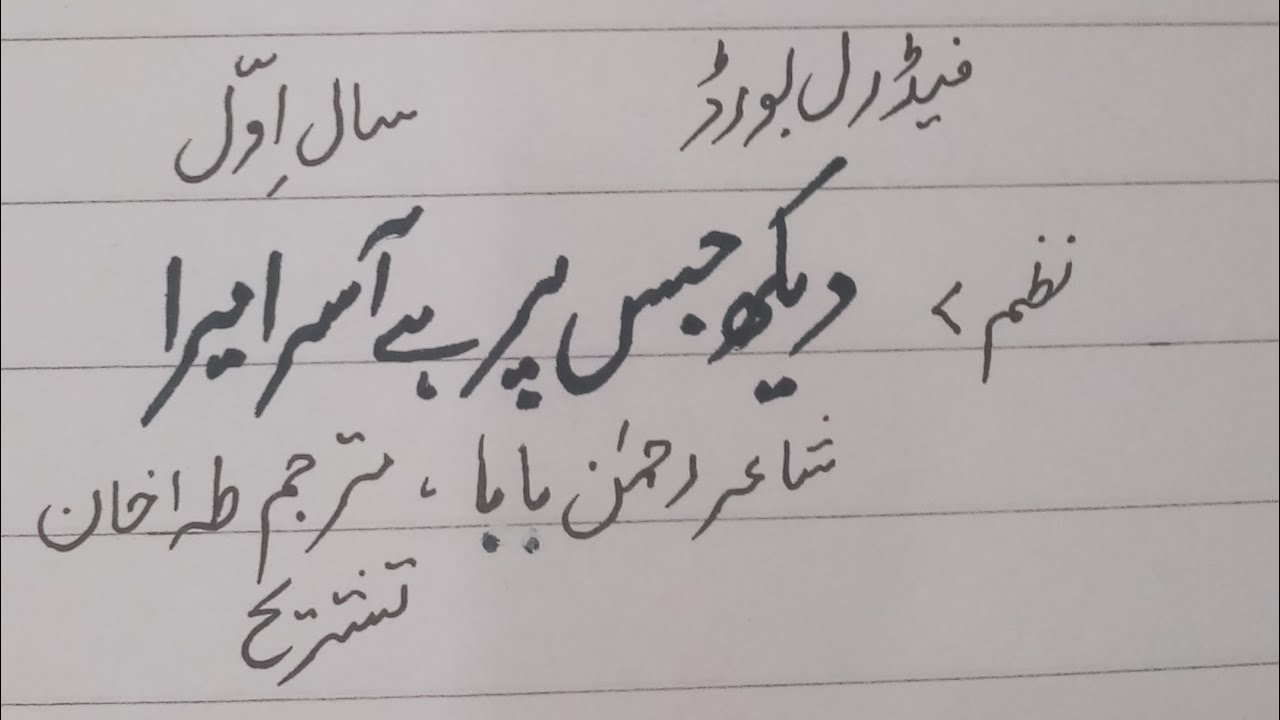 فیڈرل بورڈ سالِ اوّل
نظم > دیکھ جس پر ہے آسرا میرا
شاعر رحمٰن بابا ، مترجم طہٰ خان
تشریح